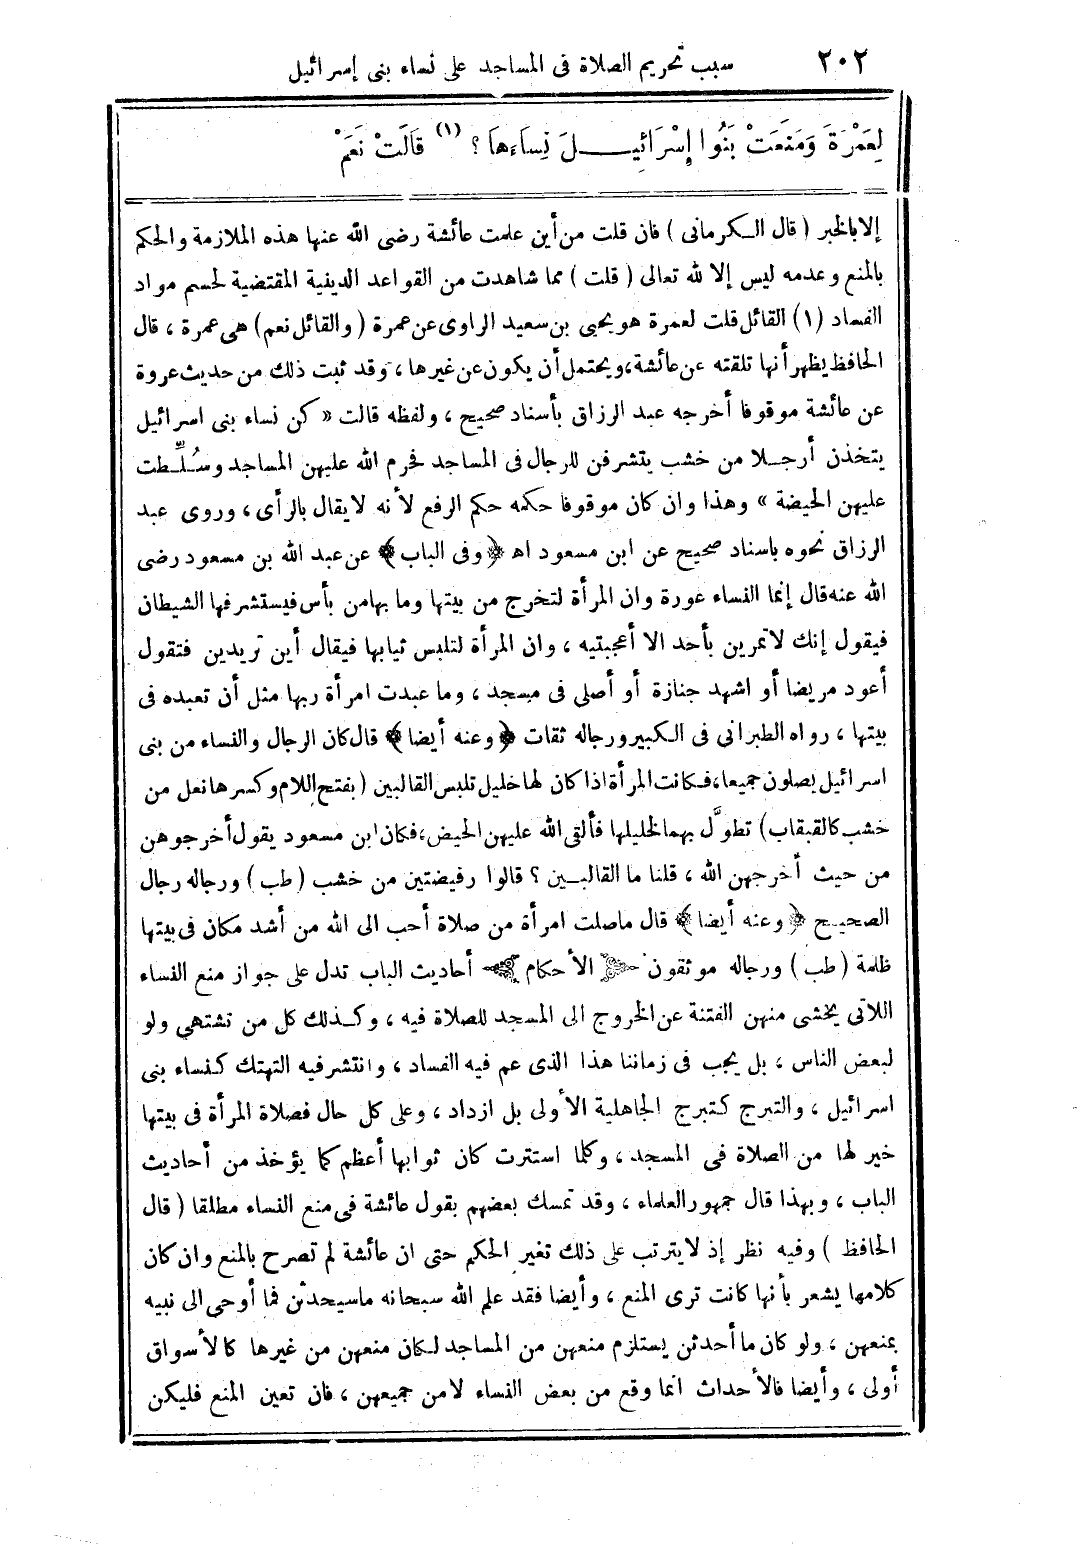 ٢٠٢ سبب تحريم الصلاة فى المساجد على نساء بنى إسرائيل
لِعَمْرَةَ وَمَنَعَتْ بَنُوا إِسْرَائِيلَ نِسَاءَهَا ؟ (١) قَالَتْ نَعَمْ
إلا بالخبر ( قال الكرمانى ) فان قلت من أين علمت عائشة رضى الله عنها هذه الملازمة والحكم
بالمنع وعدمه ليس إلا لله تعالى ( قلت ) مما شاهدت من القواعد الدينية المقتضية لحسم مواد
الفساد (١) القائل قلت لعمرة هو يحيى بن سعيد الراوى عن عمرة ( والقائل نعم) هى عمرة ، قال
الحافظ يظهر أنها تلقته عن عائشة، ويحتمل أن يكون عن غيرها ، وقد ثبت ذلك من حديث عروة
عن عائشة موقوفا أخرجه عبد الرزاق بأسناد صحيح ، ولفظه قالت « كن نساء بنى اسرائيل
يتخذن أرجلا من خشب يتشرفن للرجال فى المساجد فحرم الله عليهن المساجد وسُلِّطت
عليهن الحيضة » وهذا وان كان موقوفا حكمه حكم الرفع لأنه لا يقال بالرأى ، وروى عبد
الرزاق نحوه باسناد صحيح عن ابن مسعود اه ﴿وفى الباب﴾ عن عبد الله بن مسعود رضى
الله عنه قال إنما النساء عورة وان المرأة لتخرج من بيتها وما بها من بأس فيستشرفها الشيطان
فيقول إنك لا تمرين بأحد الا أعجبتيه ، وان المرأة لتلبس ثيابها فيقال أين تريدين فتقول
أعود مريضا أو اشهد جنازة أو أصلى فى مسجد ، وما عبدت امرأة ربها مثل أن تعبده فى
بيتها ، رواه الطبرانى فى الكبير ورجاله ثقات ﴿وعنه أيضا﴾ قال كان الرجال والنساء من بنى
اسرائيل يصلون جميعا، فكانت المرأة اذا كان لها خليل تلبس القالبين (بفتح اللام وكسرها نعل من
خشب كالقبقاب) تطوَّل بهما لخليلها فألقى الله عليهن الحيض، فكان ابن مسعود يقول أخرجوهن
من حيث أخرجهن الله ، قلنا ما القالبين ؟ قالوا رفيضتين من خشب ( طب ) ورجاله رجال
الصحيح ﴿وعنه أيضا﴾ قال ما صلت امرأة من صلاة أحب الى الله من أشد مكان فى بيتها
ظلمة ( طب ) ورجاله موثقون الأحكام أحاديث الباب تدل على جواز منع النساء
اللاتى يخشى منهن الفتنة عن الخروج الى المسجد للصلاة فيه ، وكذلك كل من تشتهي ولو
لبعض الناس ، بل يجب فى زماننا هذا الذى عم فيه الفساد ، وانتشر فيه التهتك كنساء بنى
اسرائيل ، والتبرج كتبرج الجاهلية الأولى بل ازداد ، وعلى كل حال فصلاة المرأة فى بيتها
خير لها من الصلاة فى المسجد ، وكلما استترت كان ثوابها أعظم كما يؤخذ من أحاديث
الباب ، وبهذا قال جمهور العلماء ، وقد تمسك بعضهم بقول عائشة فى منع النساء مطلقا ( قال
الحافظ ) وفيه نظر إذ لا يترتب على ذلك تغير الحكم حتى ان عائشة لم تصرح بالمنع وان كان
كلامها يشعر بأنها كانت ترى المنع ، وأيضا فقد علم الله سبحانه ما سيحدثن فما أوحى الى نبيه
بمنعهن ، ولو كان ما أحدثن يستلزم منعهن من المساجد لكان منعهن من غيرها كالأسواق
أولى ، وأيضا فالأحداث انما وقع من بعض النساء لا من جميعهن ، فان تعين المنع فليكن